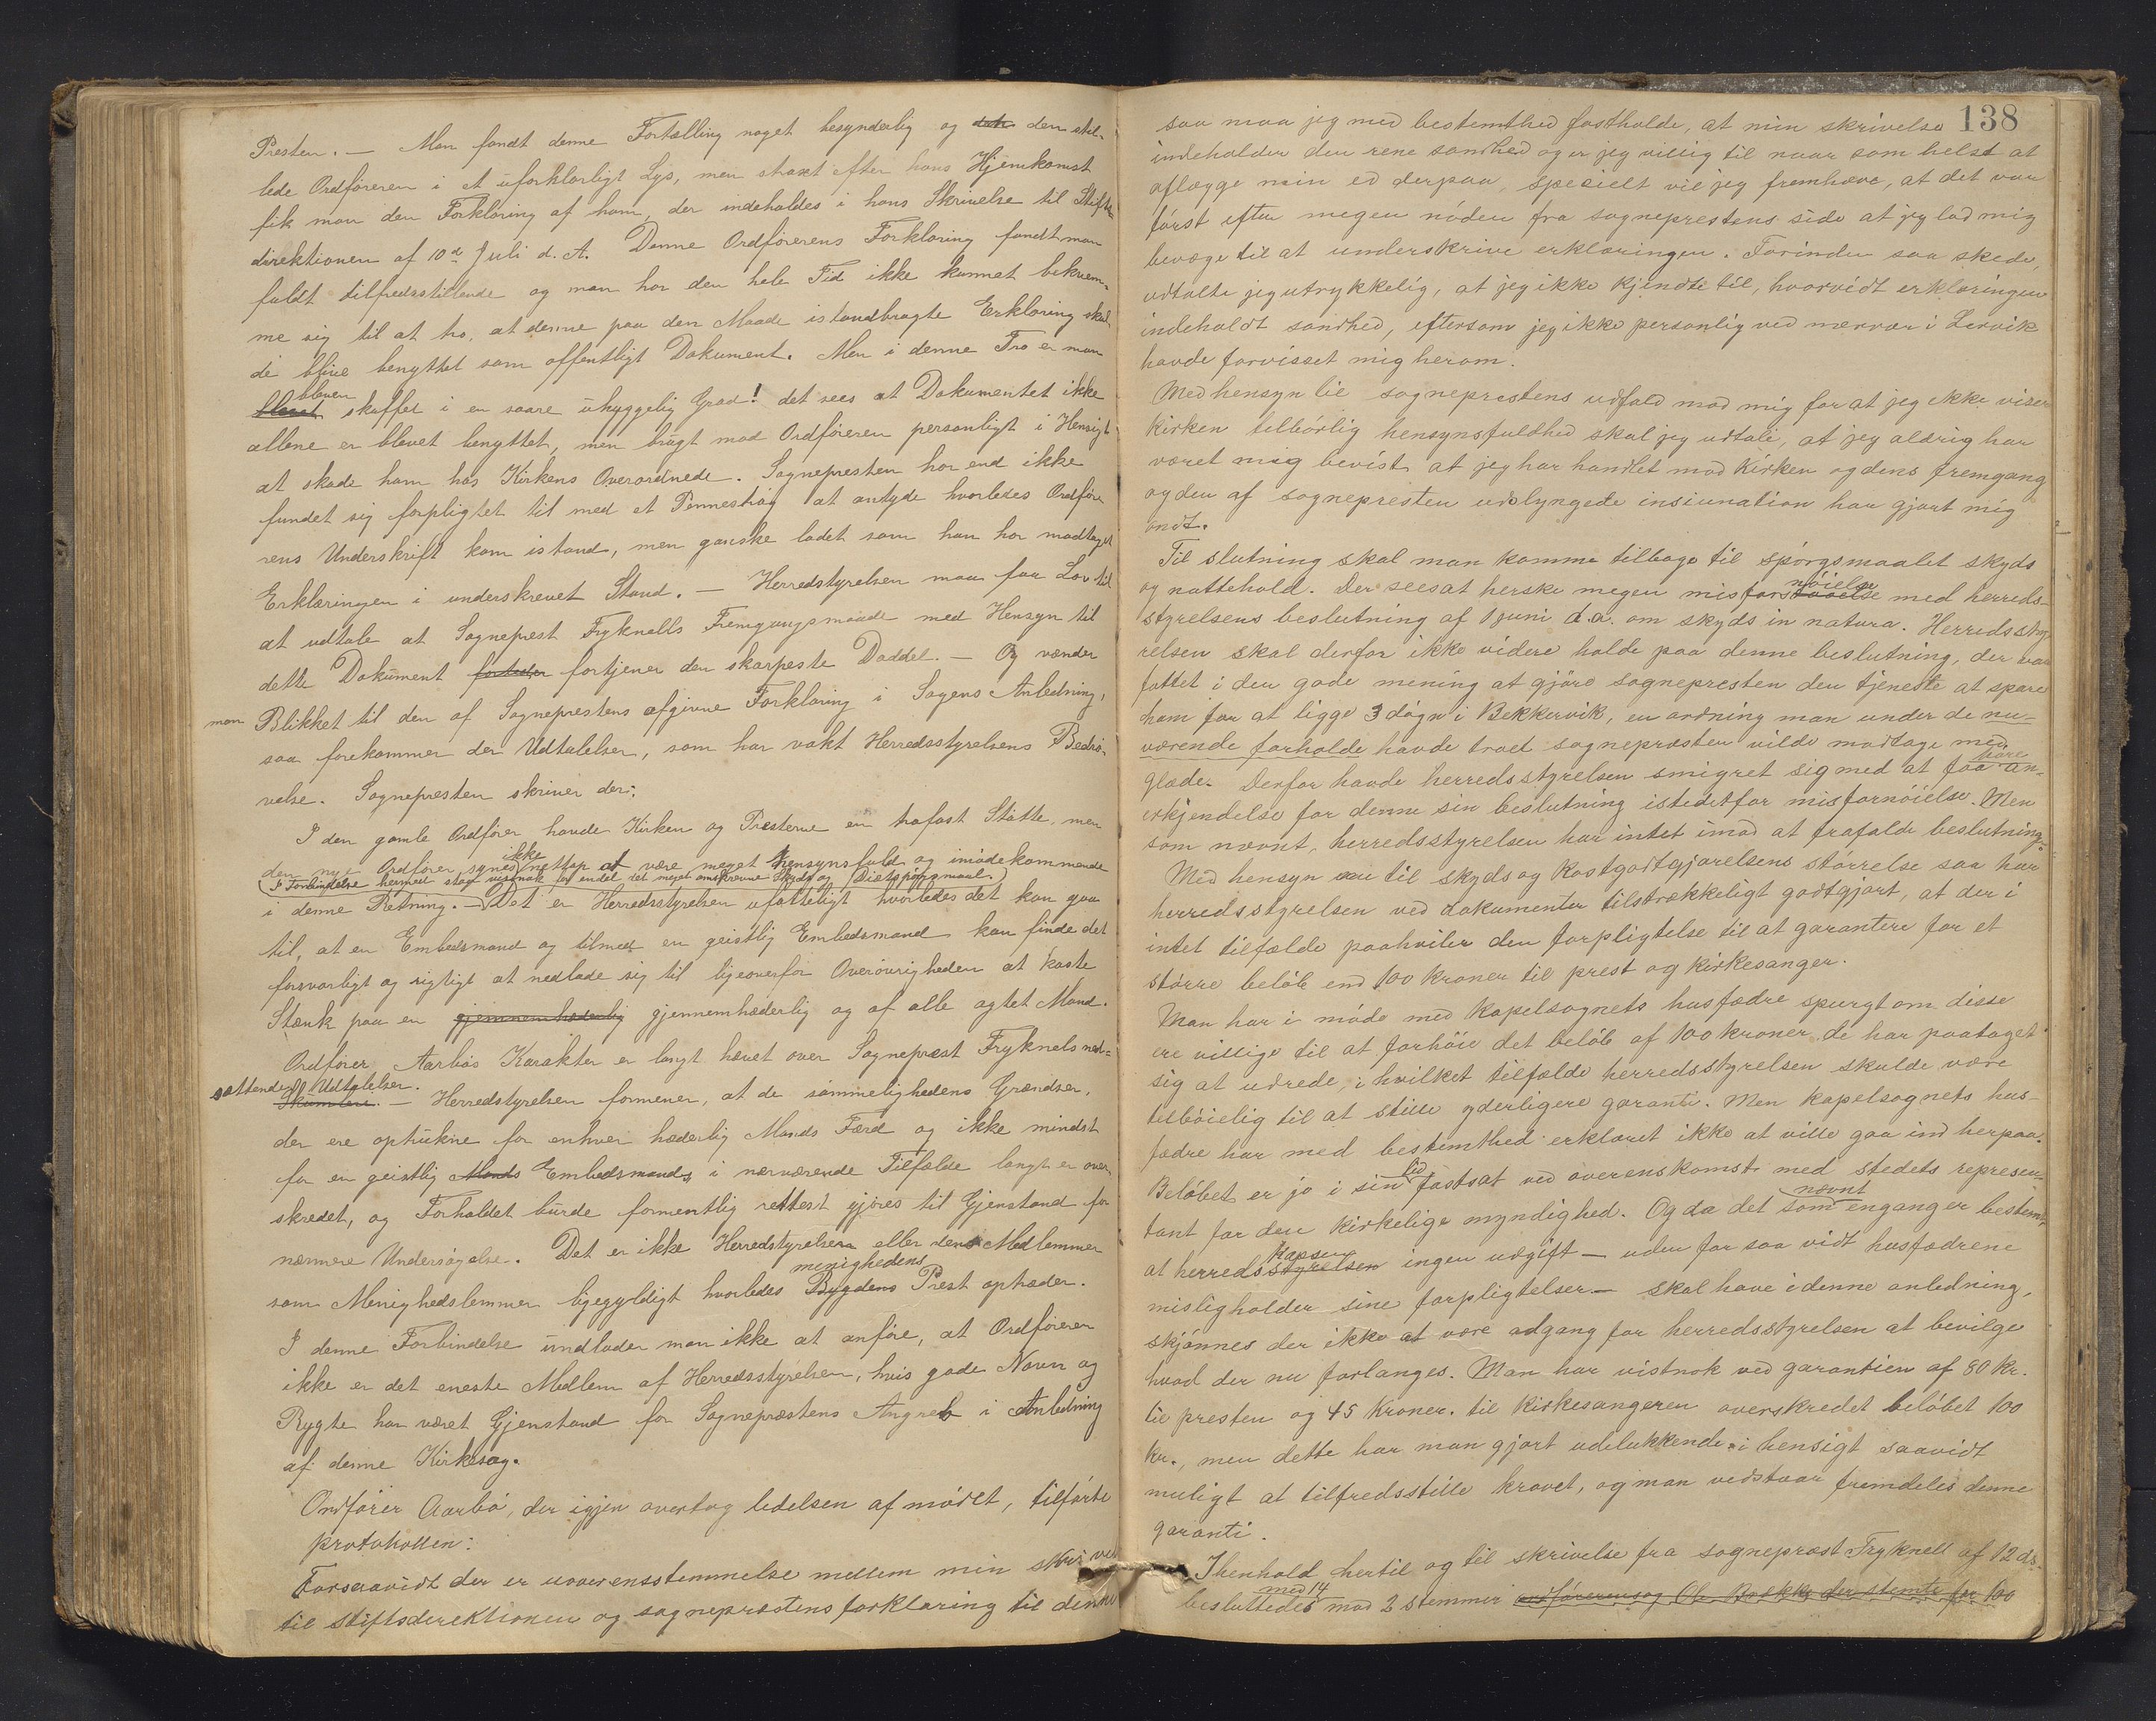 Presten. — Man fandt denne Fortælling noget besynderlig og den stil-
lede Ordføreren i et uforklarligt Lys, men straxt efter hans Hjemkomst
fik man den Forklaring af ham, der indeholdes i hans Skrivelse til Stifts-
direktionen af 10de Juli d. A. Denne Ordførerens Forklaring fandt man
fuldt tilfredsstillende og man har den hele Tid ikke kunnet bekvem-
me sig til at tro, at denne paa den Maade istandbragte Erklæring skul-
de blive benyttet som offentligt Dokument. Men i denne Tro er man
bleven skuffet i en saare uhyggelig Grad! det sees at Dokumentet ikke
allene er blevet benyttet, men brugt mod Ordføreren personligt i Hensigt
at skade ham hos Kirkens Overordnede. Sognepresten har end ikke
fundet sig forpligtet til med et Pennestrøg at antyde hvorledes Ordføre-
rens Underskrift kom istand, men ganske ladet som han har modtaget
Erklæringen i underskrevet Stand. — Herredstyrelsen maa faa Lov til
at udtale at Sogneprest Fryknells Fremgangsmaade med Hensyn til
dette Dokument fortjener den skarpeste Daddel. — Og vender
man Blikket til den af Sogneprestens afgivne Forklaring i Sagens Anledning,
saa forekommer der Udtalelser, som har vakt Herredsstyrelsens Bedrø-
velse. Sognepresten skriver der:
I den gamle Ordfører havde Kirken og Presterne en trofast Støtte, men
den nye Ordfører synes ikke nettop at være meget hensynsfuld og imødekommende
(I Forbindelse hermed staar vistnok for endel det meget omskrevne Skyds og Diætspørgsmaal.)
i denne Retning. — Det er Herredsstyrelsen ufatteligt hvorledes det kan gaa
til, at en Embedsmand og tilmed en geistlig Embedsmand kan finde det
forsvarligt og rigtigt at nedlade sig til ligeoverfor Overøvrigheden at kaste
Stænk paa en gjennemhæderlig gjennemhæderlig og af alle agtet Mand.
Ordfører Aarbøs Karakter er langt hævet over Sogneprest Fryknels ned-
sættende Udtalelser. — Herredstyrelsen formener, at de sømmelighedens Grændser,
der ere optrukne for enhver hæderlig Mands Færd og ikke mindst
for en geistlig Mands Embedsmands i nærværende Tilfælde langt er over-
skredet, og Forholdet burde formentlig rettest gjøres til Gjenstand for
nærmere Undersøgelse. Det er ikke Herredstyrelsen eller dens Medlemmer
som Menighedslemmer ligegyldigt hvorledes Bygdens menighedens Prest optræder.
I denne Forbindelse undlader man ikke at anføre, at Ordføreren
ikke er det eneste Medlem af Herredsstyrelsen, hvis gode Navn og
Rygte har været Gjenstand for Sogneprestens Angreb i Anledning
af denne Kirkesag.
Ordfører Aarbø, der igjen overtog ledelsen af mødet, tilførte
protokollen:
Forsaavidt der er uoverensstemmelse mellem min skrivelse
til stiftsdirektionen og sogneprestens forklaring til denne
138
saa maa jeg med bestemthed fastholde, at min skrivelse
indeholder den rene sandhed og er jeg villig til naar som helst at
aflægge min ed derpaa, specielt vil jeg fremhæve, at det var
først efter megen nøden fra sogneprestens side at jeg lod mig
bevæge til at underskrive erklæringen. Forinden saa skede,
udtalte jeg utrykkelig, at jeg ikke kjendte til, hvorvidt erklæringen
indeholdt sandhed, eftersom jeg ikke personlig ved nærvær i Lervik
havde forvisset mig herom.
Med hensyn til sogneprestens udfald mod mig for at jeg ikke viser
Kirken tilbørlig hensynsfuldhed skal jeg udtale, at jeg aldrig har
været mig bevist at jeg har handlet mod Kirken og dens fremgang
og den af sognepresten udslyngede insiunation har gjort mig
ondt.
Til slutning skal man komme tilbage til spørgsmaalet skyds
og nattehold. Der sees at herske megen misfornøielse med herreds-
styrelsens beslutning af 1 juni d.a. om skyds in natura. Herredssty-
relsen skal derfor ikke videre holde paa denne beslutning, der var
fattet i den gode mening at gjøre sognepresten den tjeneste at spare
ham for at ligge 3 døgn i Bekkervik, en ordning man under de nu-
værende forholde havde troet sognepresten vilde modtage med
glæde. Derfor havde herredsstyrelsen smigret sig med at faa høre an-
erkjendelse for denne sin beslutning istedetfor misfornøielse. Men
som nævnt, herredsstyrelsen har intet imod at frafalde beslutning.
Med hensyn til skyds og kostgodtgjørelsens størrelse saa har
herredsstyrelsen ved dokumenter tilstrækkeligt godtgjort, at der i
intet tilfælde paahviler den forpligtelse til at garantere for et
større beløb end 100 kroner til prest og kirkesanger.
Man har i møde med kapelsognets husfædre spurgt om disse
ere villige til at forhøie det beløb af 100 kroner de har paataget
sig at udrede, i hvilket tilfælde herredsstyrelsen skulde være
tilbøielig til at stille yderligere garanti. Men kapelsognets hus-
fædre har med bestemthed erklæret ikke at ville gaa ind herpaa.
Beløbet er jo i sin tid fastsat ved overenskomst med stedets represen-
tant for den kirkelige myndighed. Og da det som nævnt engang er bestemt,
at herredskassen ingen udgift — uden for saa vidt husfædrene
misligholder sine forpligtelser — skal have i denne anledning,
skjønnes der ikke at være adgang for herredsstyrelsen at bevilge
hvad der nu forlanges. Man har vistnok ved garantien af 80 kr.
til presten og 45 kroner til kirkesangeren overskredet beløbet 100
kr., men dette har man gjort udelukkende i hensigt saavidt
muligt at tilfredsstille kravet, og man vedstaar fremdeles denne
garanti.
I henhold hertil og til skrivelse fra sogneprest Fryknell af 12 ds.
besluttedes med 14 mod 2 stemmer ordføreren og Ole Bækk der stemte for 100